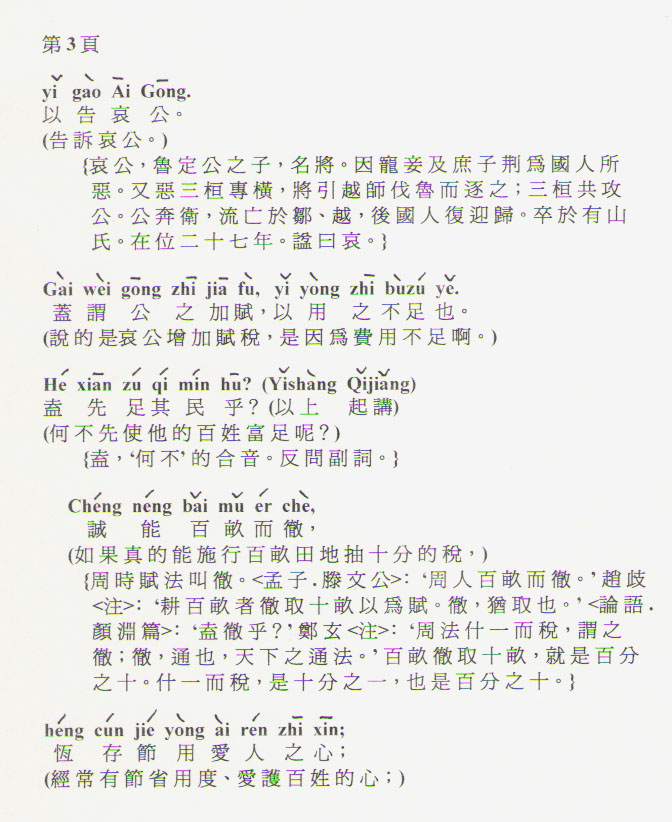 第3頁
yǐ gào Āi Gōng.
以告哀公。
(告訴哀公。)
{哀公，魯定公之子，名將。因寵妾及庶子荆爲國人所
惡。又惡三桓專橫，將引越師伐魯而逐之；三桓共攻
公。公奔衛，流亡於鄒、越，後國人復迎歸。卒於有山
氏。在位二十七年。諡曰哀。}
Gài wèi gōng zhī jiā fù, yǐ yòng zhī bùzú yě.
蓋謂公之加賦，以用之不足也。
(說的是哀公增加賦稅，是因爲費用不足啊。)
Hé xiān zú qí mín hū? (Yǐshàng Qǐjiǎng)
盍先足其民乎？(以上起講)
(何不先使他的百姓富足呢？)
{盍，‘何不’的合音。反問副詞。}
Chéng néng bǎi mǔ ér chè,
誠能百畝而徹，
(如果真的能施行百畝田地抽十分的稅，)
{周時賦法叫徹。<孟子.滕文公>：‘周人百畝而徹。’趙歧
<注>：‘耕百畝者徹取十畝以爲賦。徹，猶取也。’<論語.
顏淵篇>：‘盍徹乎？’鄭玄<注>：‘周法什一而稅，謂之
徹；徹，通也，天下之通法。’百畝徹取十畝，就是百分
之十。什一而稅，是十分之一，也是百分之十。}
héng cún jié yòng ài rén zhī xīn;
恆存節用愛人之心；
(經常有節省用度、愛護百姓的心；)